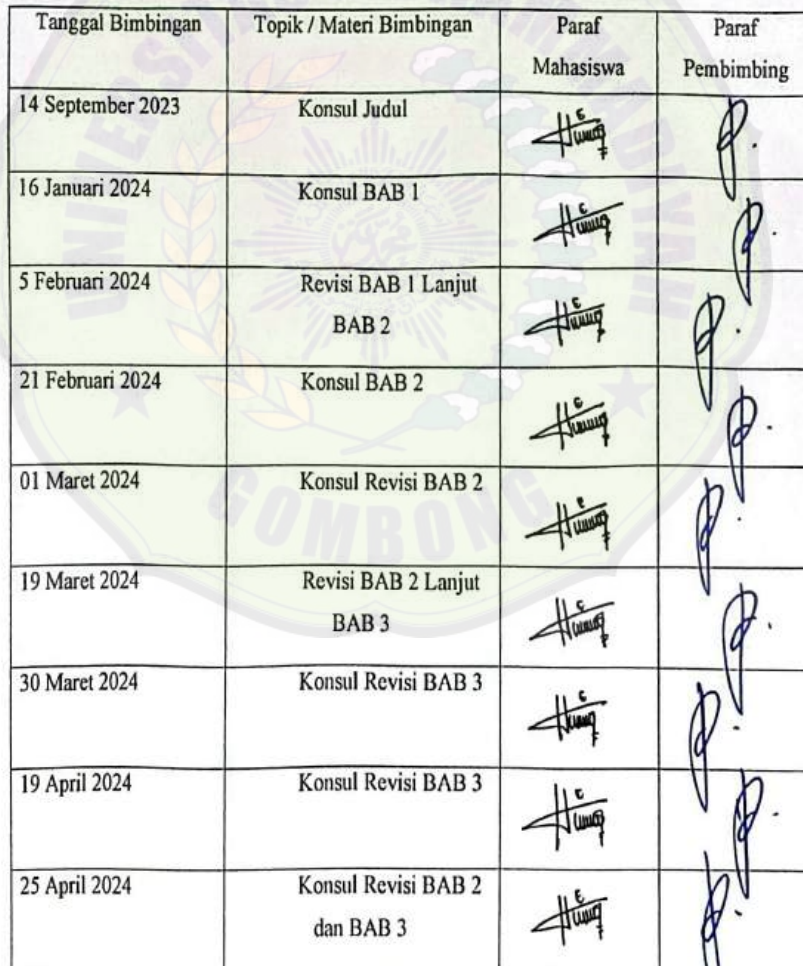 Tanggal Bimbingan Topik / Materi Bimbingan Paraf Mahasiswa Paraf Pembimbing
14 September 2023 Konsul Judul
16 Januari 2024 Konsul BAB 1
5 Februari 2024 Revisi BAB 1 Lanjut
BAB 2
21 Februari 2024 Konsul BAB 2
01 Maret 2024 Konsul Revisi BAB 2
19 Maret 2024 Revisi BAB 2 Lanjut
BAB 3
30 Maret 2024 Konsul Revisi BAB 3
19 April 2024 Konsul Revisi BAB 3
25 April 2024 Konsul Revisi BAB 2
dan BAB 3
GOMBONG